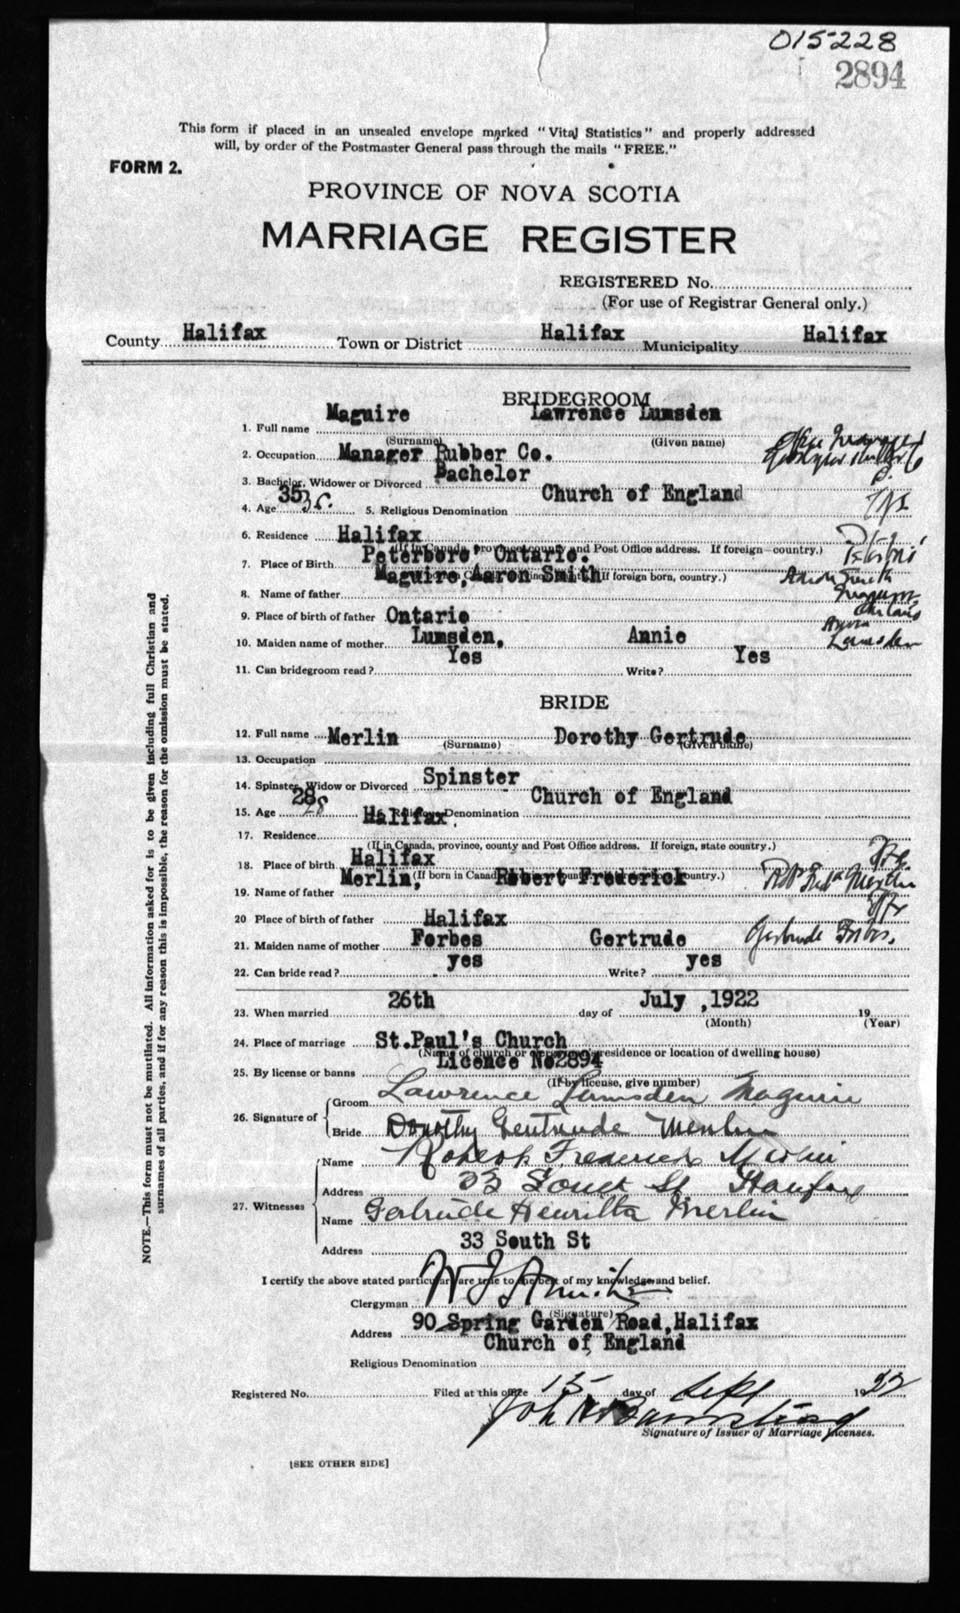 015228
2894
This form if placed in an unsealed envelope marked "Vital Statistics" and properly addressed
will, by order of the Postmaster General pass through the mails "FREE."
FORM 2.
PROVINCE OF NOVA SCOTIA
MARRIAGE REGISTER
REGISTERED No.
(For use of Registrar General only.)
County Halifax Town or District Halifax Municipality Halifax
BRIDEGROOM
1. Full name Maguire Lawrence Lumsden
(Surname) (Given name)
2. Occupation Manager Rubber Co.
3. Bachelor, Widower or Divorced Bachelor
4. Age 35 35. 5. Religious Denomination Church of England
6. Residence Halifax
(If in Canada, province, county and Post Office address. If foreign—country.)
7. Place of Birth Peterboro Ontario.
If foreign born, country.)
8. Name of father Maguire, Aaron Smith
Aaron Smith
9. Place of birth of father Ontario
10. Maiden name of mother Lumsden, Annie
Lumsden
11. Can bridegroom read? Yes Write? Yes
BRIDE
12. Full name Merlin Dorothy Gertrude
(Surname) (Given name)
13. Occupation
14. Spinster, Widow or Divorced Spinster
15. Age 28 28 16. Religious Denomination Church of England
17. Residence Halifax
(If in Canada, province, county and Post Office address. If foreign, state country.)
18. Place of birth Halifax
(If born in Canada country.)
19. Name of father Merlin, Robert Frederick
20 Place of birth of father Halifax
21. Maiden name of mother Forbes Gertrude Gertrude Forbes.
22. Can bride read? yes Write? yes
23. When married 26th day of July ,1922 19
(Month) (Year)
24. Place of marriage St.Paul's Church
(Name of church or residence or location of dwelling house)
25. By license or banns Licence No2894
(If by license, give number)
26. Signature of Groom Lawrence Lumsden Maguire
Bride Dorothy Gertrude Merlin
27. Witnesses Name Robert Frederick Merlin
Address 33 South St Halifax
Name Gertrude Henritta Merlin
Address 33 South St
I certify the above stated particulars are true to the best of my knowledge and belief.
Clergyman
(Signature)
Address 90 Spring Garden Road,Halifax
Religious Denomination Church of England
Registered No. Filed at this office 15 day of Sept 1922
Signature of Issuer of Marriage Licenses.
[SEE OTHER SIDE]
NOTE.—This form must not be mutilated. All information asked for is to be given including full Christian and
surnames of all parties, and if for any reason this is impossible, the reason for the omission must be stated.